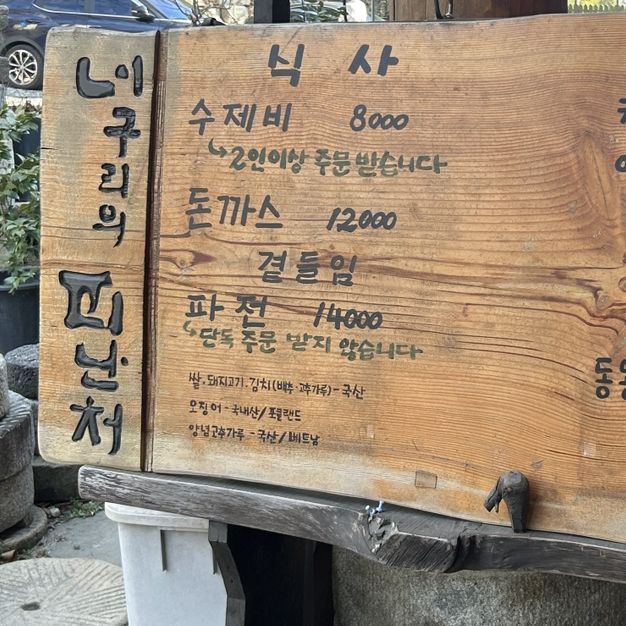 너구리의
피난처
식 사
수제비 8000
↳2인이상 주문 받습니다
돈까스 12000
곁들임
파전 14000
↳단독 주문 받지 않습니다
쌀.돼지고기.김치(배추·고추가루)-국산
오징어-국내산/포클랜드
양념고추가루-국산/베트남